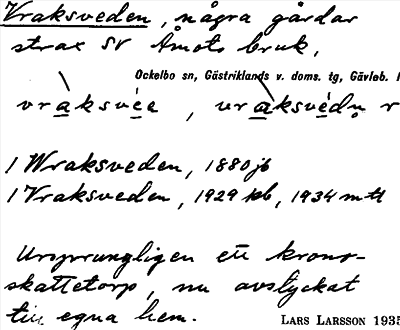 Vraksveden, några gårdar
strax SV Åmots bruk,
Ockelbo sn, Gästriklands v. doms. tg, Gävleb.
vraksvéa, vraksvédn
1 Wraksveden, 1880 jb
1 Vraksveden, 1929 kb, 1934 mtl
Ursprungligen ett krono-
skattetorp, nu avstyckat
till egna hem.
LARS LARSSON 1935